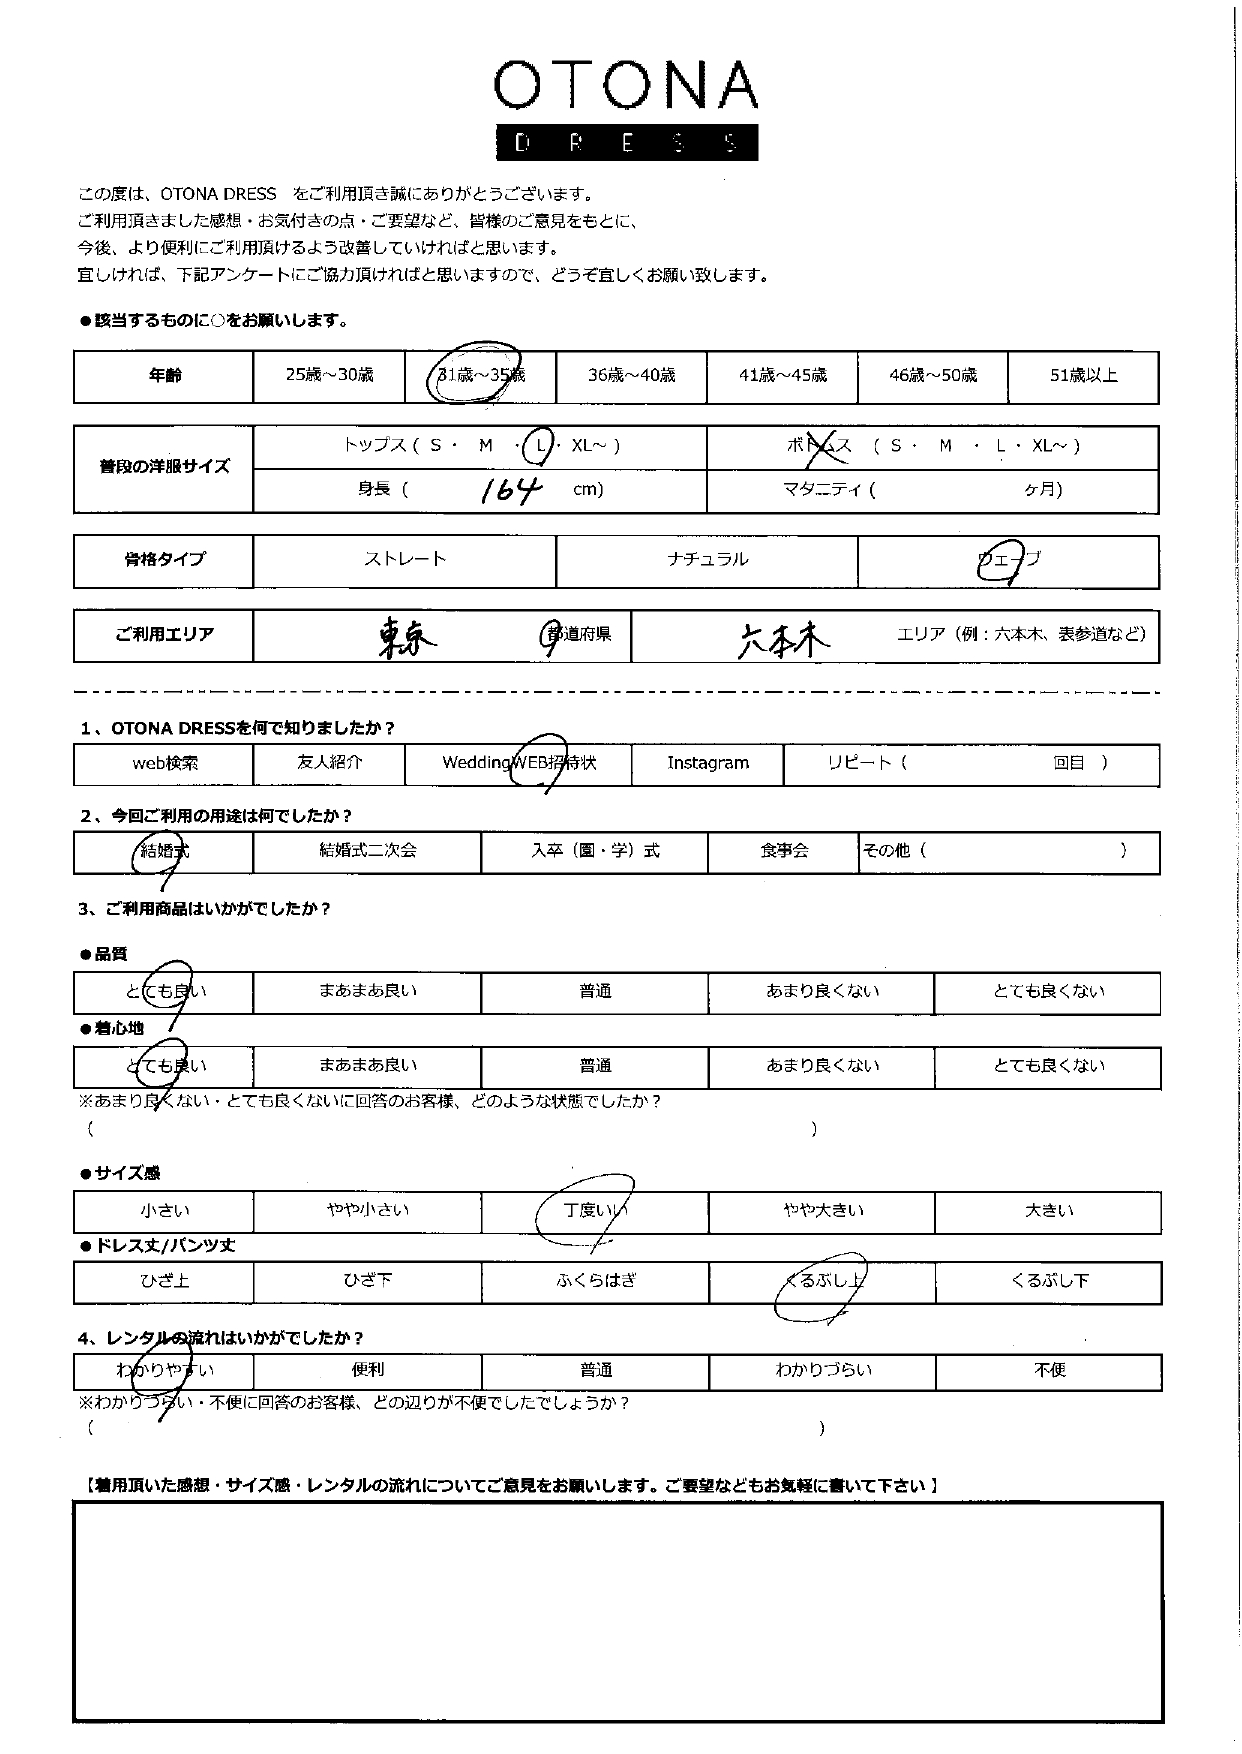 OTONA
DRESS
この度は、OTONA DRESS　をご利用頂き誠にありがとうございます。
ご利用頂きました感想・お気付きの点・ご要望など、皆様のご意見をもとに、
今後、より便利にご利用頂けるよう改善していければと思います。
宜しければ、下記アンケートにご協力頂ければと思いますので、どうぞ宜しくお願い致します。
●該当するものに○をお願いします。
年齢 25歳～30歳 31歳～35歳 36歳～40歳 41歳～45歳 46歳～50歳 51歳以上
普段の洋服サイズ
トップス ( S ・ M ・ L ・ XL～ ) ボトムス ( S ・ M ・ L ・ XL～ )
身長 ( 164 cm) マタニティ ( ヶ月)
骨格タイプ ストレート ナチュラル ウェーブ
ご利用エリア 東京 都道府県 六本木 エリア（例：六本木、表参道など）
1、OTONA DRESSを何で知りましたか？
web検索 友人紹介 WeddingWEB招待状 Instagram リピート（ 回目 ）
2、今回ご利用の用途は何でしたか？
結婚式 結婚式二次会 入卒（園・学）式 食事会 その他（ ）
3、ご利用商品はいかがでしたか？
●品質
とても良い まあまあ良い 普通 あまり良くない とても良くない
●着心地
とても良い まあまあ良い 普通 あまり良くない とても良くない
※あまり良くない・とても良くないに回答のお客様、どのような状態でしたか？
（ ）
●サイズ感
小さい やや小さい 丁度いい やや大きい 大きい
●ドレス丈/パンツ丈
ひざ上 ひざ下 ふくらはぎ くるぶし上 くるぶし下
4、レンタルの流れはいかがでしたか？
わかりやすい 便利 普通 わかりづらい 不便
※わかりづらい・不便に回答のお客様、どの辺りが不便でしたでしょうか？
（ ）
【着用頂いた感想・サイズ感・レンタルの流れについてご意見をお願いします。ご要望などもお気軽に書いて下さい】